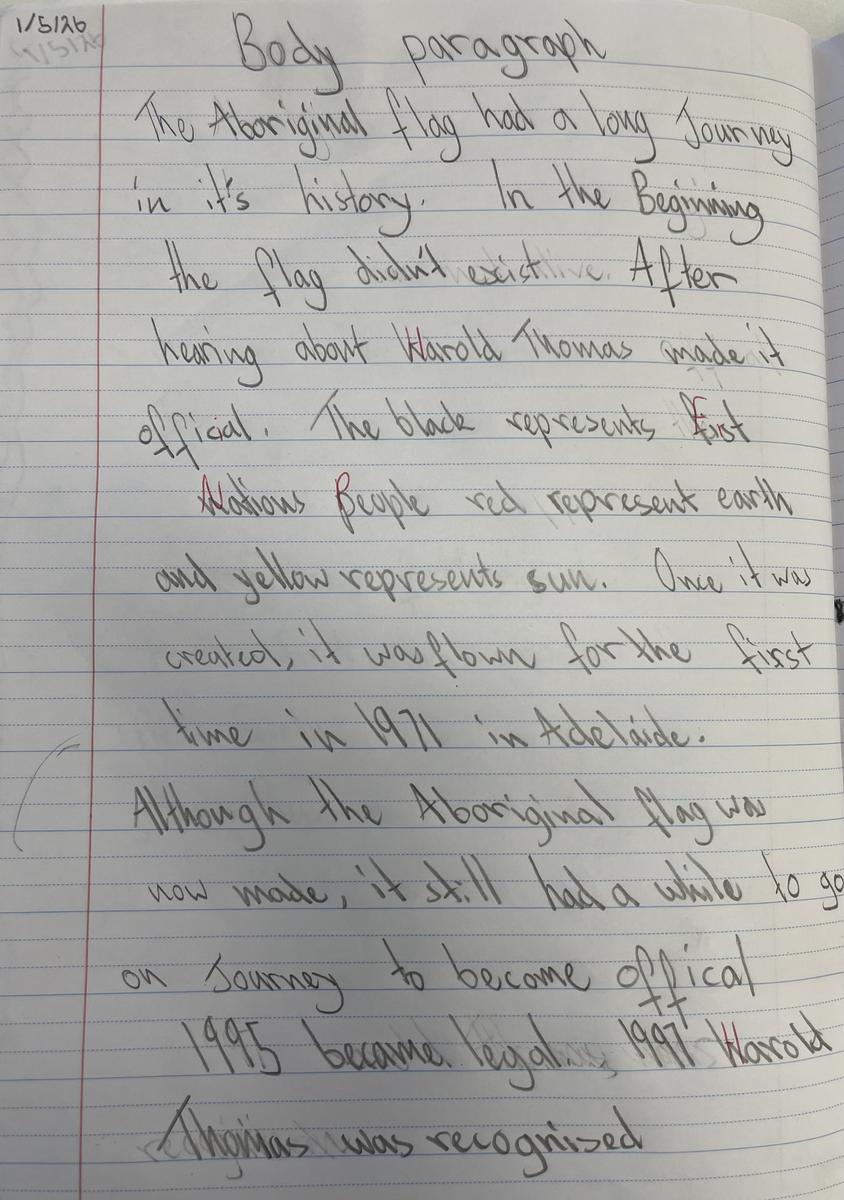 1/5/26
Body paragraph
The Aboriginal flag had a long Journey
in it's history. In the Beginning
the flag didn't exist. After
hearing about Harold Thomas made it
official. The black represents First
Nations People red represent earth
and yellow represents sun. Once it was
created, it was flown for the first
time in 1971 in Adelaide.
Although the Aboriginal flag was
now made, it still had a while to go
on Journey to become offical
1995 became legal. 1997 Harold
Thomas was recognised